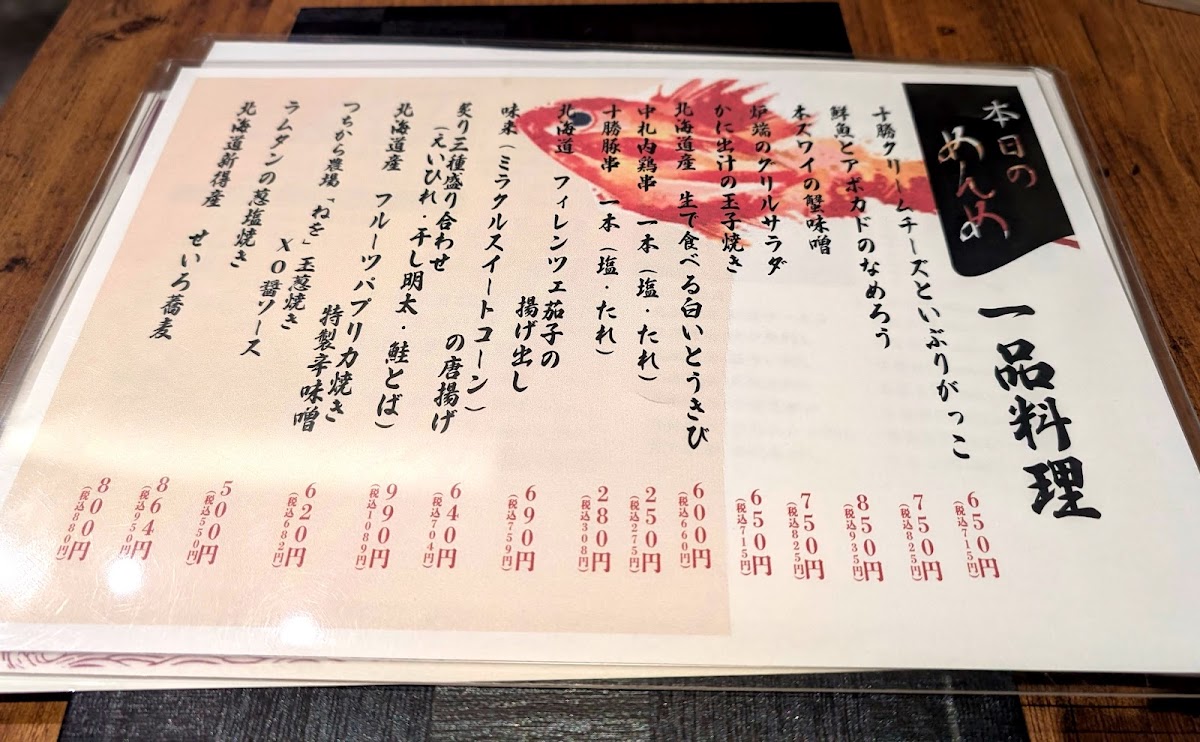 本日の
めんめ
一品料理
十勝クリームチーズといぶりがっこ
650円
(税込715円)
鮮魚とアボカドのなめろう
750円
(税込825円)
本ズワイの蟹味噌
850円
(税込935円)
炉端のグリルサラダ
750円
(税込825円)
かに出汁の玉子焼き
650円
(税込715円)
北海道産 生で食べる白いとうきび
600円
(税込660円)
中札内鶏串 一本(塩・たれ)
250円
(税込275円)
十勝豚串 一本(塩・たれ)
280円
(税込308円)
北海道 フィレンツェ茄子の
揚げ出し
690円
(税込759円)
味来(ミラクルスイートコーン)
の唐揚げ
640円
(税込704円)
炙り三種盛り合わせ
(えいひれ・干し明太・鮭とば)
990円
(税込1089円)
北海道産 フルーツパプリカ焼き
特製辛味噌
620円
(税込682円)
つちから農場「ねを」玉葱焼き
XO醤ソース
500円
(税込550円)
ラムタンの葱塩焼き
864円
(税込950円)
北海道新得産 せいろ蕎麦
800円
(税込880円)